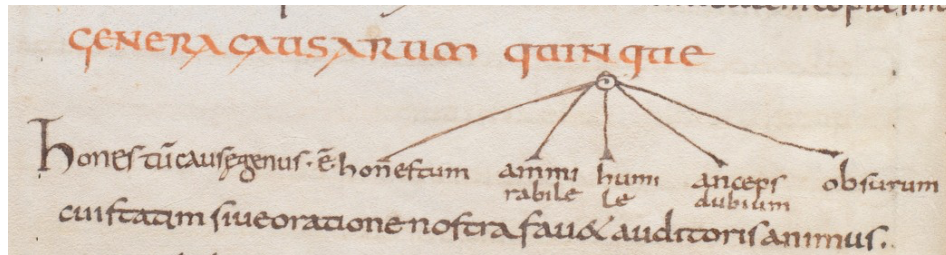 GENERA CAUSARUM QUINQUE
honestū causę genus · ē honestum ammirabile humile anceps dubium obsurum
cui statim sive oratione nostra fav& auditoris animus.